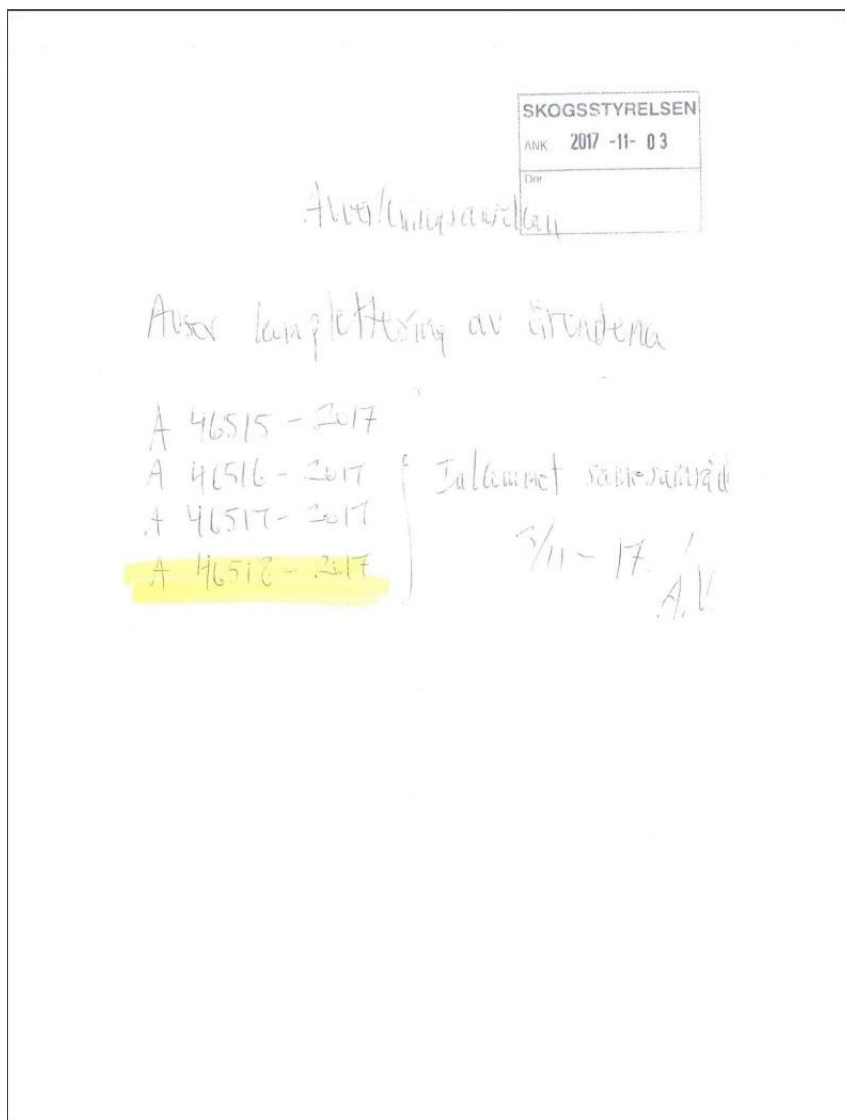 SKOGSSTYRELSEN
ANK 2017 -11- 03
Dnr
Avverkningsanmälan
Avser komplettering av ärendena
A 46515 - 2017
A 46516 - 2017
A 46517 - 2017
A 46518 - 2017
Inkommet samesamråd
3/11 - 17
A.V.